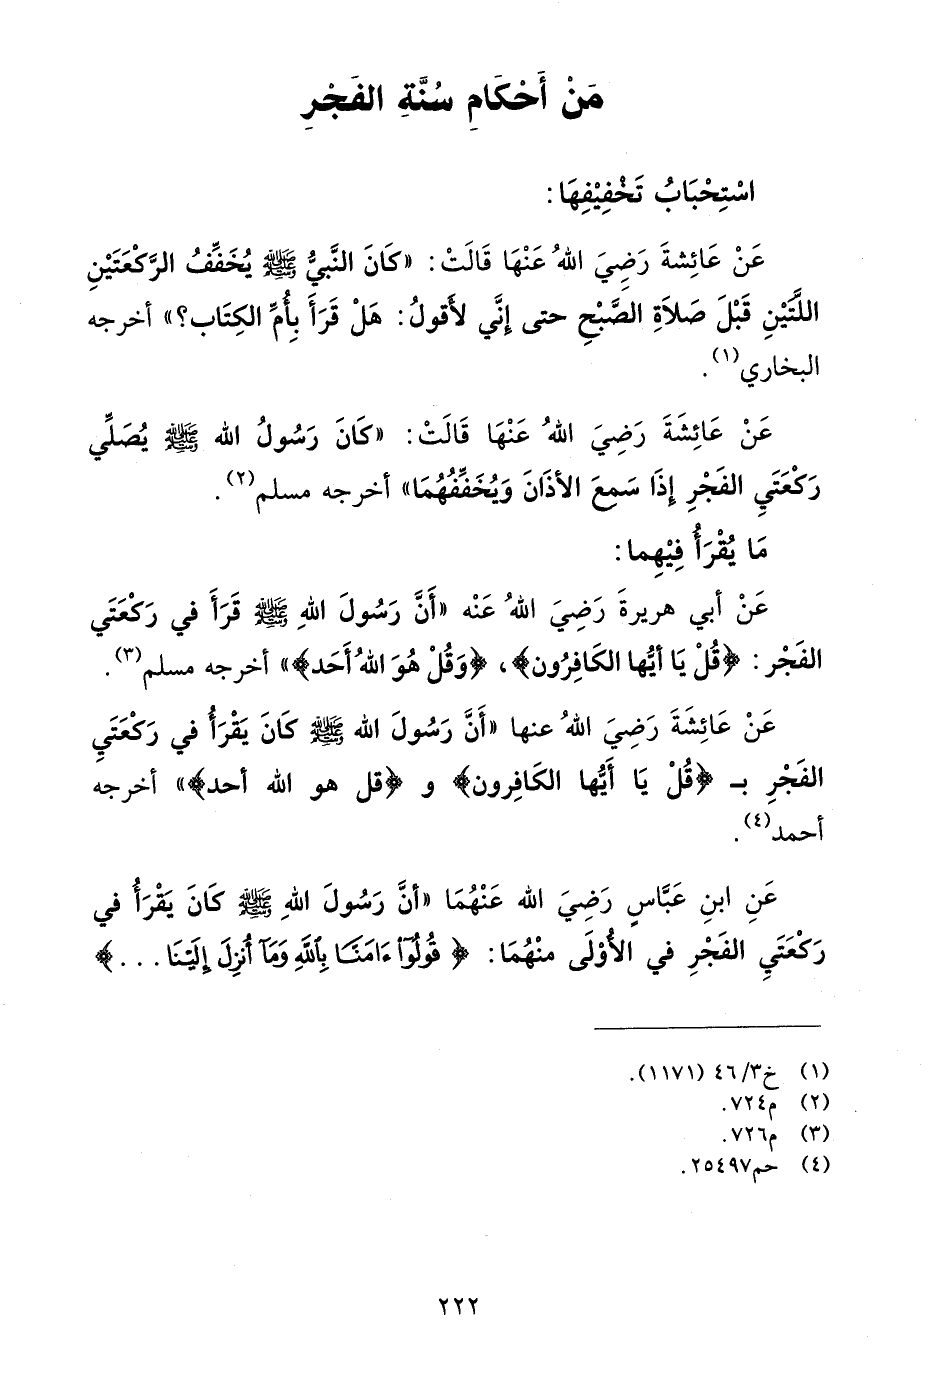 مَنْ أَحْكَامِ سُنَّةِ الفَجْرِ
اسْتِحْبَابُ تَخْفِيْفِهَا:
عَنْ عَائِشةَ رَضِيَ اللهُ عَنْهَا قَالَتْ: «كَانَ النَّبيُّ ﷺ يُخَفِّفُ الرَّكْعَتَيْنِ
اللَّتَيْنِ قَبْلَ صَلاَةِ الصَّبْحِ حتى إنِّي لأَقولُ: هَلْ قَرَأَ بِأُمِّ الكِتَاب؟» أخرجه
البخاري(١).
عَنْ عَائِشَةَ رَضِيَ اللهُ عَنْهَا قَالَتْ: «كَانَ رَسُولُ الله ﷺ يُصَلِّي
رَكْعَتَيِ الفَجْرِ إذَا سَمِعَ الأذَانَ وَيُخَفِّفُهُمَا» أخرجه مسلم(٢).
مَا يُقْرَأُ فِيْهِما:
عَنْ أبي هريرةَ رَضِيَ اللهُ عَنْه «أَنَّ رَسُولَ اللهِ ﷺ قَرَأَ في رَكْعَتَي
الفَجْر: ﴿قُلْ يَا أيُّها الكَافِرُون﴾، ﴿وَقُلْ هُوَ اللهُ أَحَد﴾» أخرجه مسلم(٣).
عَنْ عَائِشَةَ رَضِيَ اللهُ عنها «أَنَّ رَسُولَ الله ﷺ كَانَ يَقْرَأُ في رَكْعَتَيِ
الفَجْرِ بـ ﴿قُلْ يَا أَيُّها الكَافِرون﴾ و ﴿قل هو الله أحد﴾» أخرجه
أحمد(٤).
عَنِ ابنِ عَبَّاسٍ رَضِيَ الله عَنْهُمَا «أنَّ رَسُولَ اللهِ ﷺ كَانَ يَقْرَأُ في
رَكْعَتَيِ الفَجْرِ في الأُوْلَى منْهُمَا: ﴿قُولُوٓا۟ ءَامَنَّا بِٱللَّهِ وَمَآ أُنزِلَ إِلَيْنَا . . .﴾
(١) خ٣/ ٤٦ (١١٧١).
(٢) م٧٢٤.
(٣) م٧٢٦.
(٤) حم٢٥٤٩٧.
٢٢٢